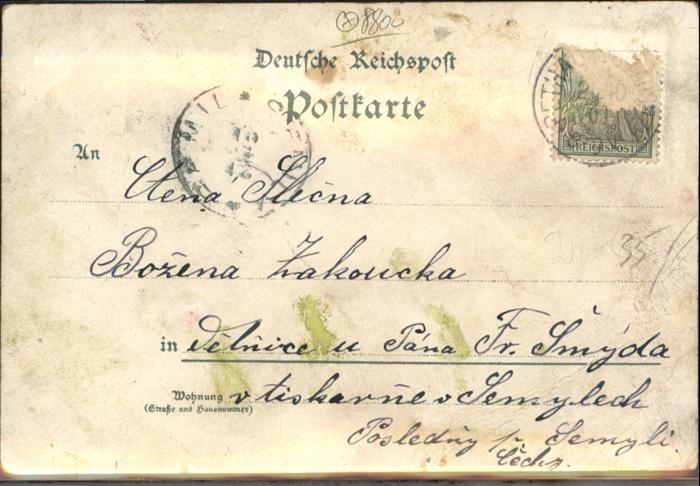 8800
Deutsche Reichspost
Postkarte
REICHSPOST
An
Ctená Slečna
Božena Žakoucka
35
in Dělnice u Pána Fr. Šmýda
Wohnung v tiskarně v Semylech
(Straße und Hausnummer)
Posledný p. Semyli
Čechy.